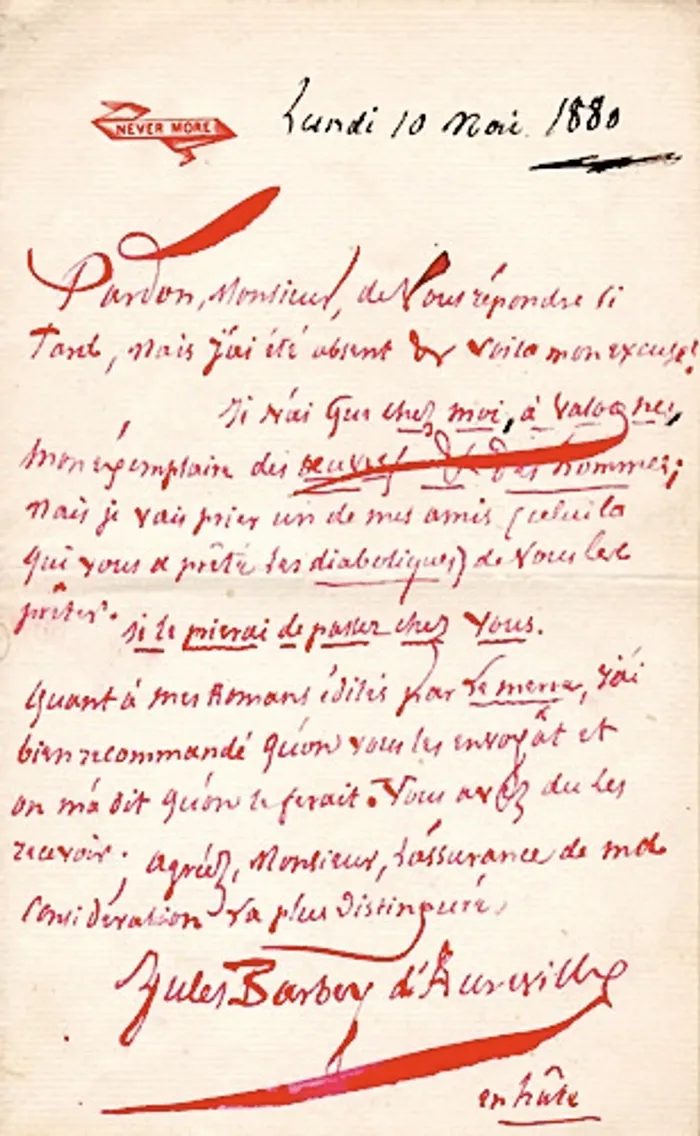 NEVER MORE
Lundi 10 Mai 1880
Pardon, Monsieur, de Vous répondre si
Tard, Mais j'ai été absent & voila mon excuse!
Je n'ai Que chez moi, à Valognes,
mon exemplaire des œuvres & Des hommes;
Mais je vais prier un de mes amis (celui la
Qui vous a prêté Les diaboliques) de Vous les
prêter.
Je le prierai de passer chez Vous.
Quant à mes Romans édités par Lemerre, j'ai
bien recommandé Qu'on vous les envoyât et
on m'a dit Qu'on le ferait. Vous avez du Les
recevoir. agréez, Monsieur, L'assurance de ma
Considération La plus Distinguée.
Jules Barbey d'Aurevilly
en hâte